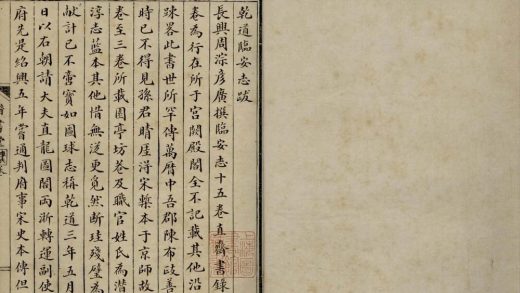 乾道臨安志跋
長興周淙彥廣撰臨安志十五卷直齋書錄
卷為行在所于宮闕殿閣全不記載其他沿
踈畧此書世所罕傳萬曆中吾郡陳布政善
時已不得見孫君晴崖得宋槧本于京師故
卷至三卷所載園亭坊巷及職官姓氏為潛
淳志藍本其他惜無從更覓然斷珪殘璧為
献計已不啻寶如圖球志稱乾道三年五月
日以右朝請大夫直龍圖閣兩浙轉運副使
府先是紹興五年嘗通判府事宋史本傳但